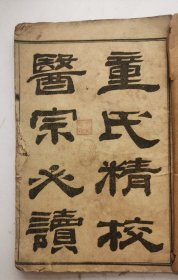 童氏精校
醫宗必讀